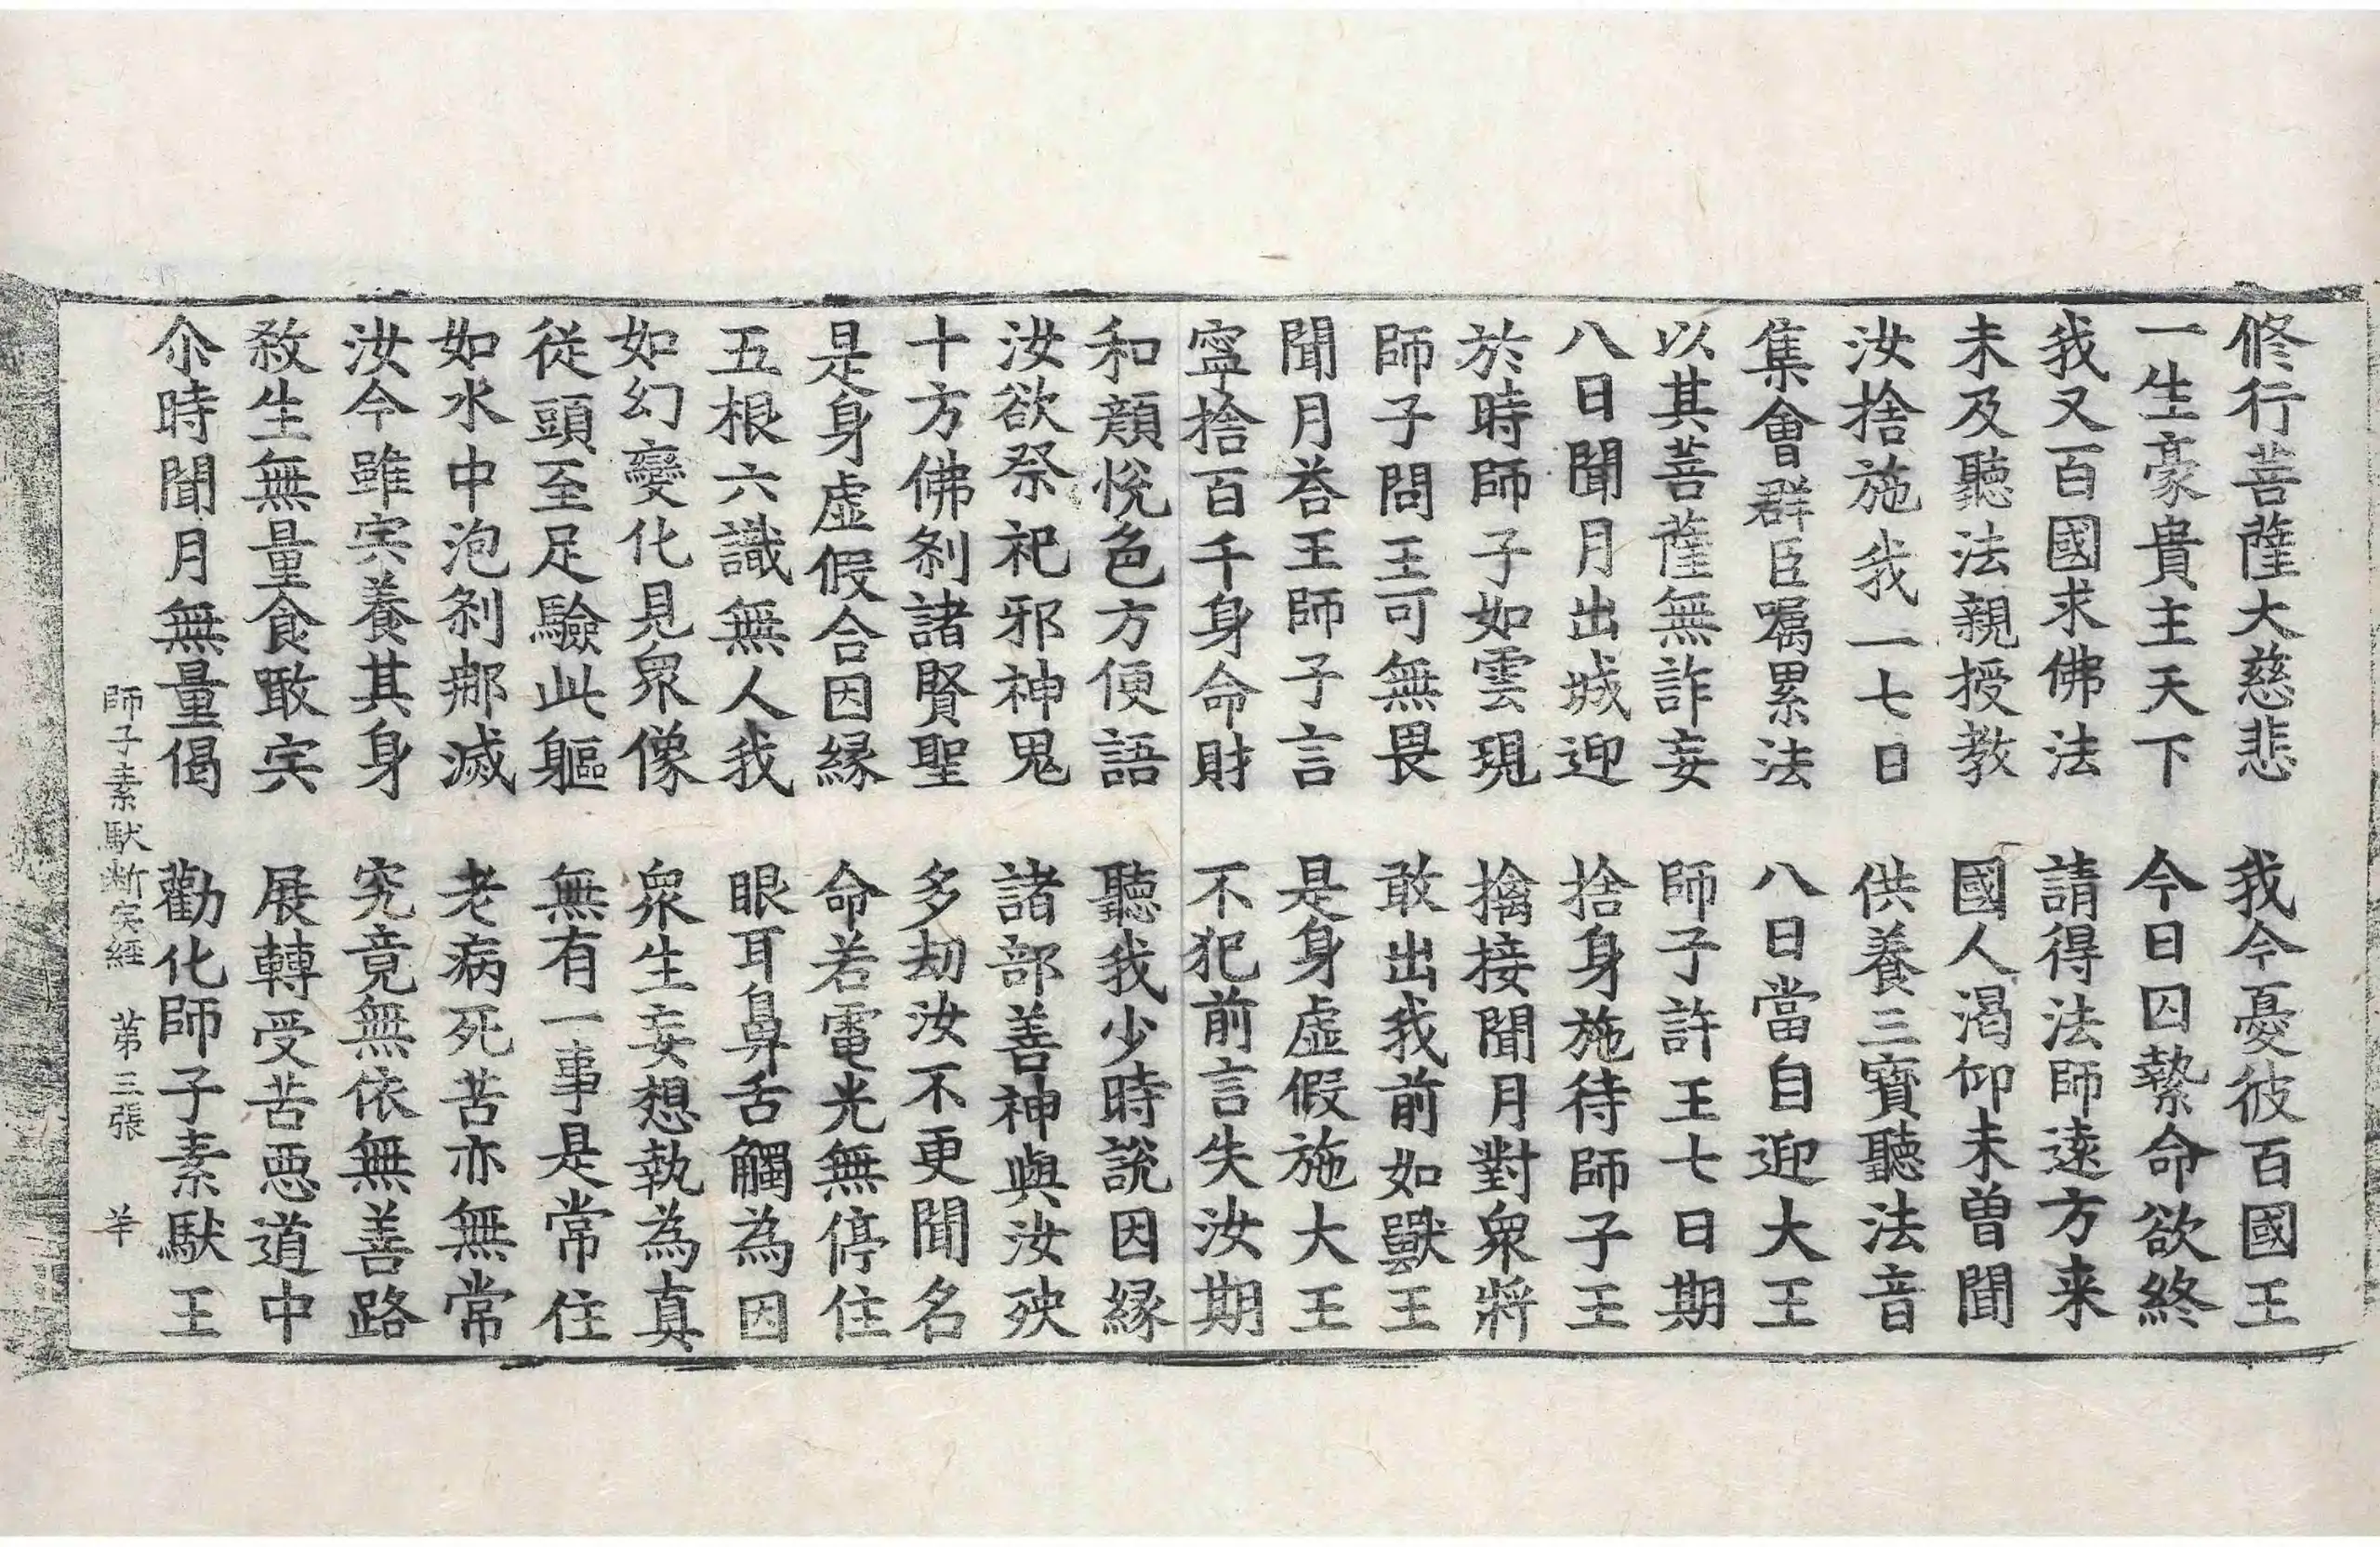 修行菩薩大慈悲　我今憂彼百國王
一生豪貴主天下　今日囚縶命欲終
我又百國求佛法　請得法師遠方来
未及聽法親授教　國人渴仰未曽聞
汝捨施我一七日　供養三寶聽法音
集會群臣囑累法　八日當自迎大王
以其菩薩無詐妄　師子許王七日期
八日聞月出城迎　捨身施待師子王
於時師子如雲現　擒接聞月對衆將
師子問王可無畏　敢出我前如獸王
聞月荅王師子言　是身虛假施大王
寧捨百千身命財　不犯前言失汝期
和顔悅色方便語　聽我少時說因縁
汝欲祭祀邪神鬼　諸部善神與汝殃
十方佛剎諸賢聖　多劫汝不更聞名
是身虛假合因縁　命若電光無停住
五根六識無人我　眼耳鼻舌觸為因
如幻變化見衆像　衆生妄想執為真
從頭至足驗此軀　無有一事是常住
如水中泡剎那滅　老病死苦亦無常
汝今雖宍養其身　究竟無依無善路
殺生無量食敢宍　展轉受苦惡道中
尒時聞月無量偈　勸化師子素馱王
師子素馱断宍經　苐三張　羊